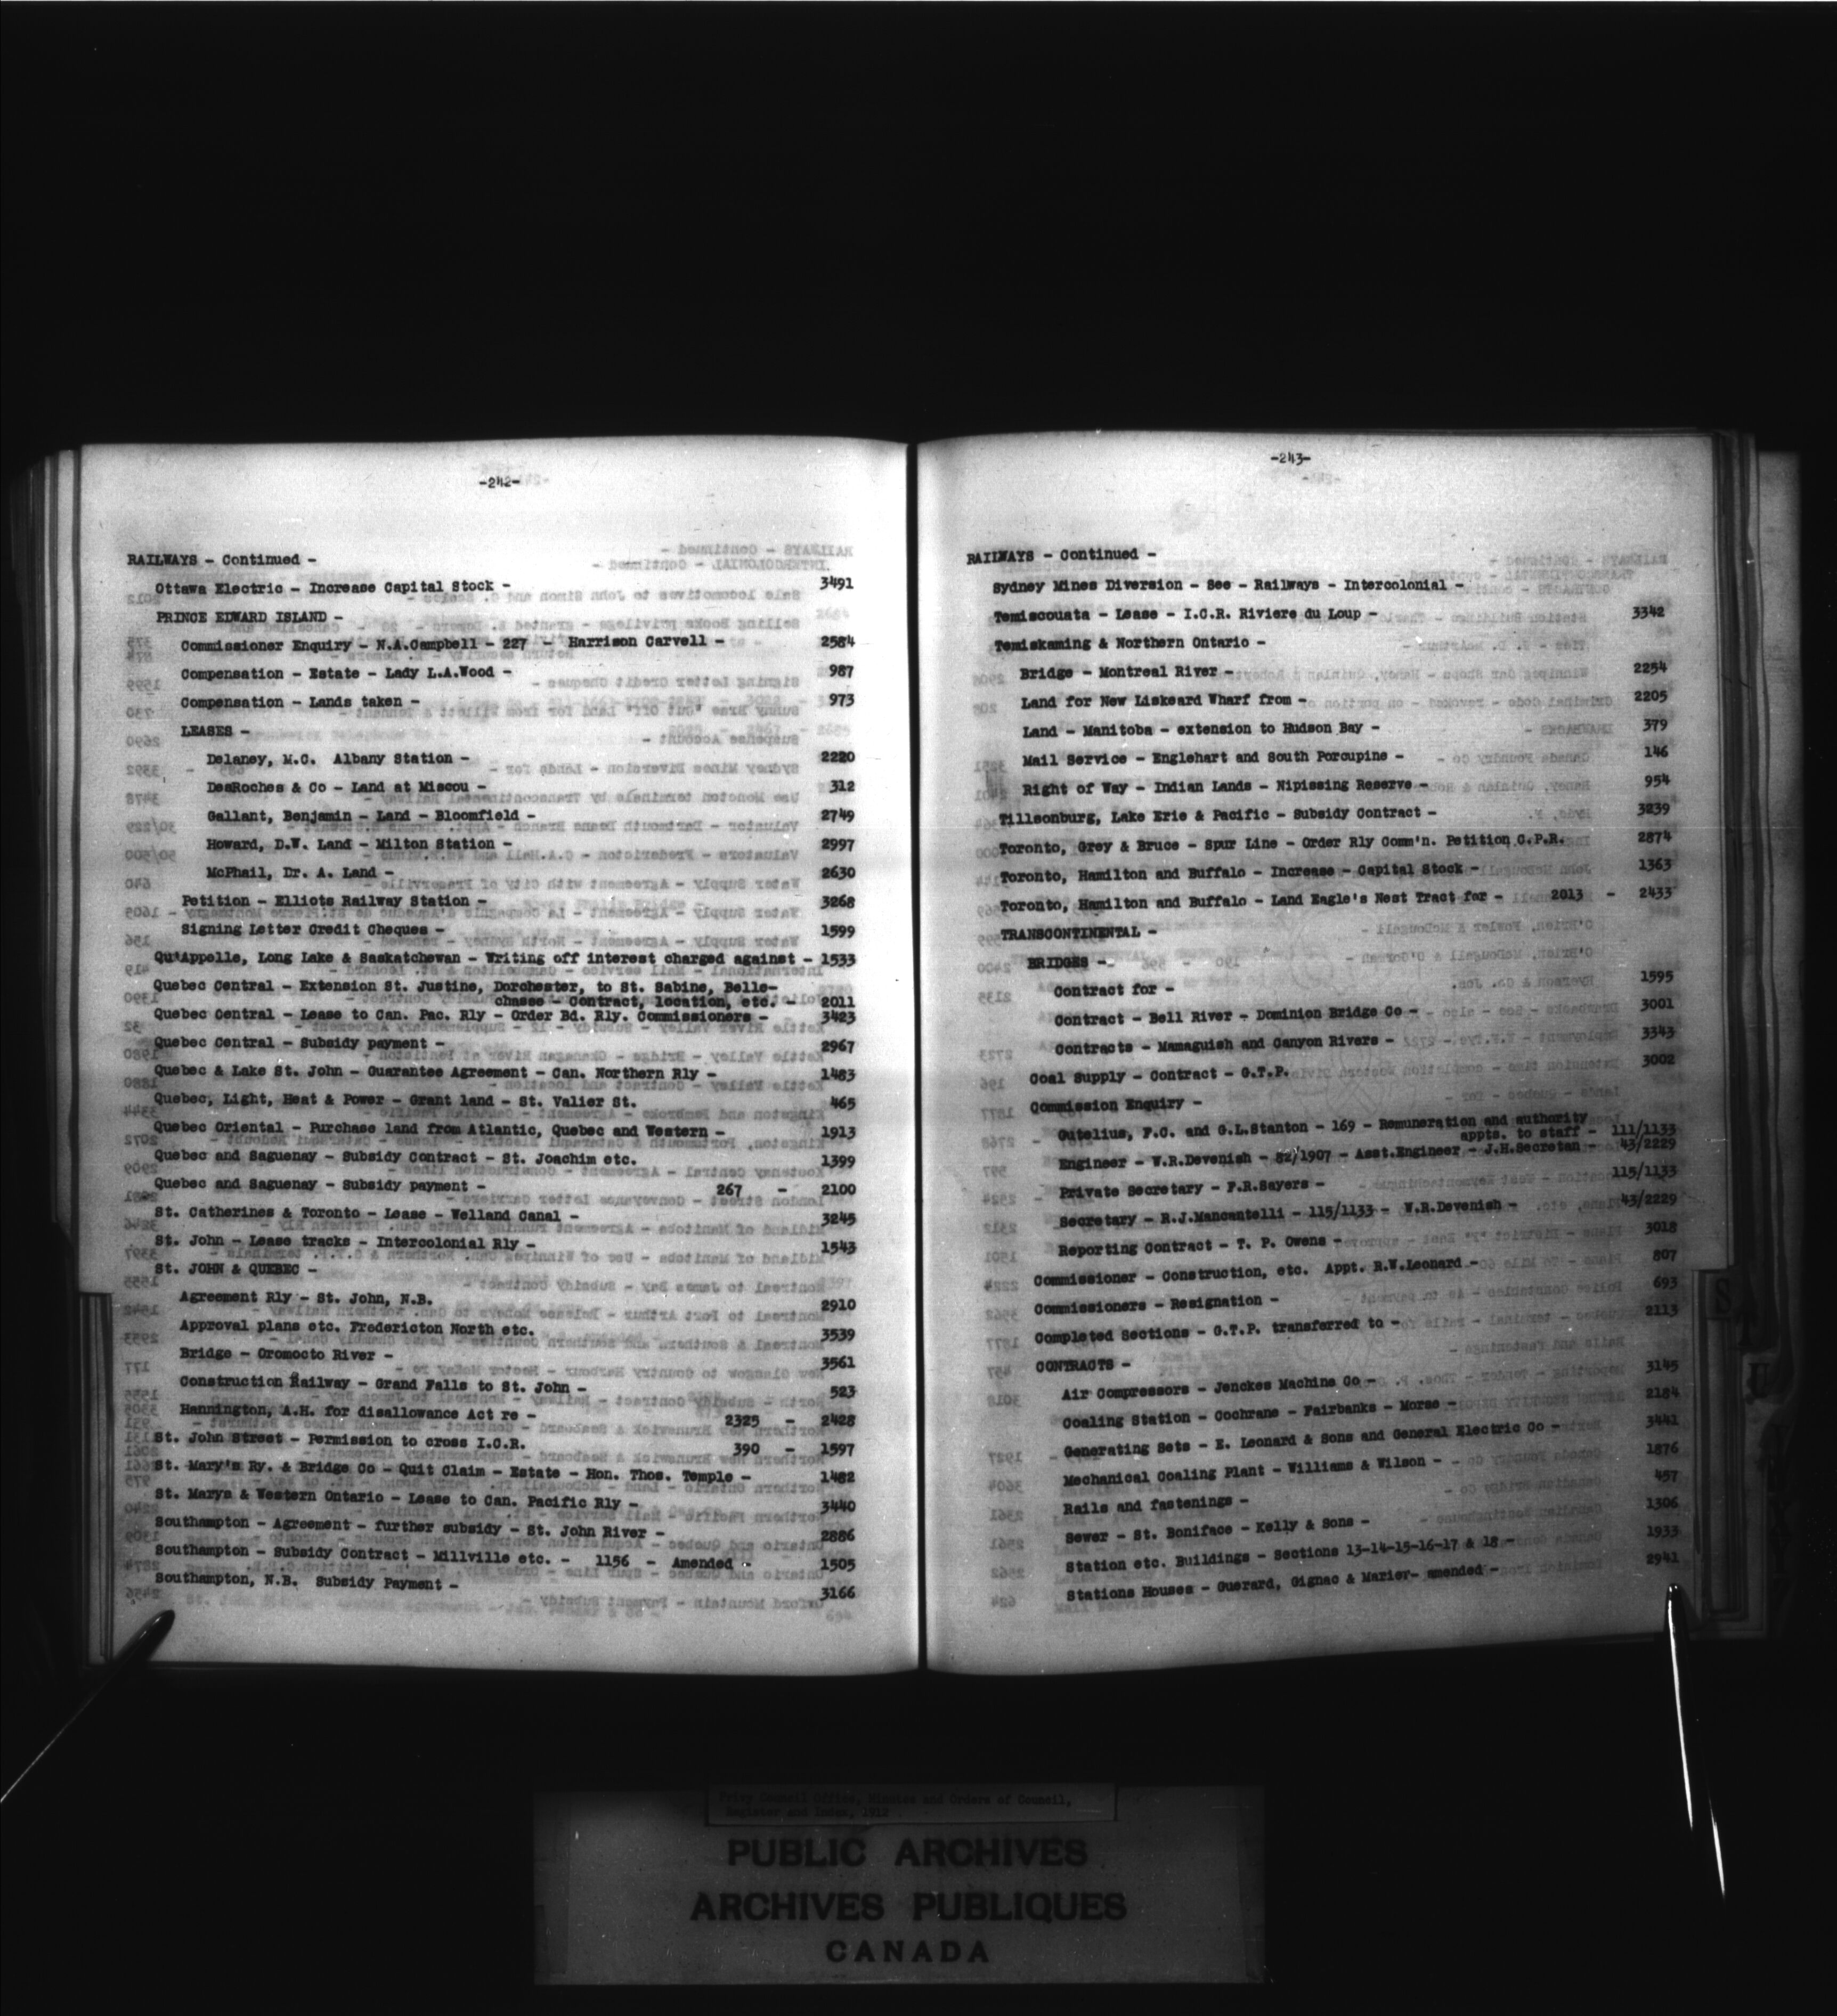 -242-
RAILWAYS - Continued -
Ottawa Electric - Increase Capital Stock - 3491
PRINCE EDWARD ISLAND -
Commissioner Enquiry - N.A.Campbell - 227 - Harrison Carvell - 2584
Compensation - Estate - Lady L.A.Wood - 987
Compensation - Lands taken - 973
LEASES -
Delaney, M.C. Albany Station - 2220
DesRoches & Co - Land at Miscou - 312
Gallant, Benjamin - Land - Bloomfield - 2749
Howard, D.W. Land - Milton Station - 2997
McPhail, Dr. A. Land - 2630
Petition - Elliots Railway Station - 3268
Signing Letter Credit Cheques - 1599
Qu'Appelle, Long Lake & Saskatchewan - Writing off interest charged against - 1533
Quebec Central - Extension St. Justine, Dorchester, to St. Sabine, Belle-
chasse - Contract, location, etc. - 2011
Quebec Central - Lease to Can. Pac. Rly - Order Bd. Rly. Commissioners - 3423
Quebec Central - Subsidy payment - 2967
Quebec & Lake St. John - Guarantee Agreement - Can. Northern Rly - 1483
Quebec, Light, Heat & Power - Grant land - St. Valier St. 465
Quebec Oriental - Purchase land from Atlantic, Quebec and Western - 1913
Quebec and Saguenay - Subsidy Contract - St. Joachim etc. 1399
Quebec and Saguenay - Subsidy payment - 267 - 2100
St. Catherines & Toronto - Lease - Welland Canal - 3245
St. John - Lease tracks - Intercolonial Rly - 1543
St. JOHN & QUEBEC -
Agreement Rly - St. John, N.B. 2910
Approval plans etc. Fredericton North etc. 3539
Bridge - Oromocto River - 3561
Construction Railway - Grand Falls to St. John - 523
Hannington, A.H. for disallowance Act re - 2325 - 2428
St. John Street - Permission to cross I.C.R. 390 - 1597
St. Mary's Ry. & Bridge Co - Quit Claim - Estate - Hon. Thos. Temple - 1482
St. Marys & Western Ontario - Lease to Can. Pacific Rly - 3440
Southampton - Agreement - further subsidy - St. John River - 2886
Southampton - Subsidy Contract - Millville etc. - 1156 - Amended - 1505
Southampton, N.B. Subsidy Payment - 3166
-243-
RAILWAYS - Continued -
Sydney Mines Diversion - See - Railways - Intercolonial -
Temiscouata - Lease - I.C.R. Riviere du Loup - 3342
Temiskaming & Northern Ontario -
Bridge - Montreal River - 2254
Land for New Liskeard Wharf from - 2205
Land - Manitoba - extension to Hudson Bay - 379
Mail Service - Englehart and South Porcupine - 146
Right of Way - Indian Lands - Nipissing Reserve - 954
Tillsonburg, Lake Erie & Pacific - Subsidy Contract - 3239
Toronto, Grey & Bruce - Spur Line - Order Rly Comm'n. Petition C.P.R. 2874
Toronto, Hamilton and Buffalo - Increase - Capital Stock - 1363
Toronto, Hamilton and Buffalo - Land Eagle's Nest Tract for - 2013 - 2433
TRANSCONTINENTAL -
BRIDGES -
Contract for - 1595
Contract - Bell River - Dominion Bridge Co - 3001
Contracts - Mamaguish and Canyon Rivers - 3343
Coal Supply - Contract - G.T.P. 3002
Commission Enquiry -
Gutelius, F.C. and G.L.Stanton - 169 - Remuneration and authority
appts. to staff - 111/1133
Engineer - W.R.Devenish - 82/1907 - Asst.Engineer - J.H.Secretan - 43/2229
Private Secretary - F.R.Sayers - 115/1133
Secretary - R.J.Mancantelli - 115/1133 - W.R.Devenish - 43/2229
Reporting Contract - T. P. Owens - 3018
Commissioner - Construction, etc. Appt. R.W.Leonard - 807
Commissioners - Resignation - 693
Completed Sections - G.T.P. transferred to - 2113
CONTRACTS -
Air Compressors - Jenckes Machine Co - 3145
Coaling Station - Cochrane - Fairbanks - Morse - 2184
Generating Sets - E. Leonard & Sons and General Electric Co - 3441
Mechanical Coaling Plant - Williams & Wilson - 1876
Rails and fastenings - 457
Sewer - St. Boniface - Kelly & Sons - 1306
Station etc. Buildings - Sections 13-14-15-16-17 & 18 - 1933
Stations Houses - Guerard, Gignac & Marier- amended - 2941
S
U
Privy Council Office, Minutes and Orders of Council,
Register and Index, 1912
PUBLIC ARCHIVES
ARCHIVES PUBLIQUES
CANADA